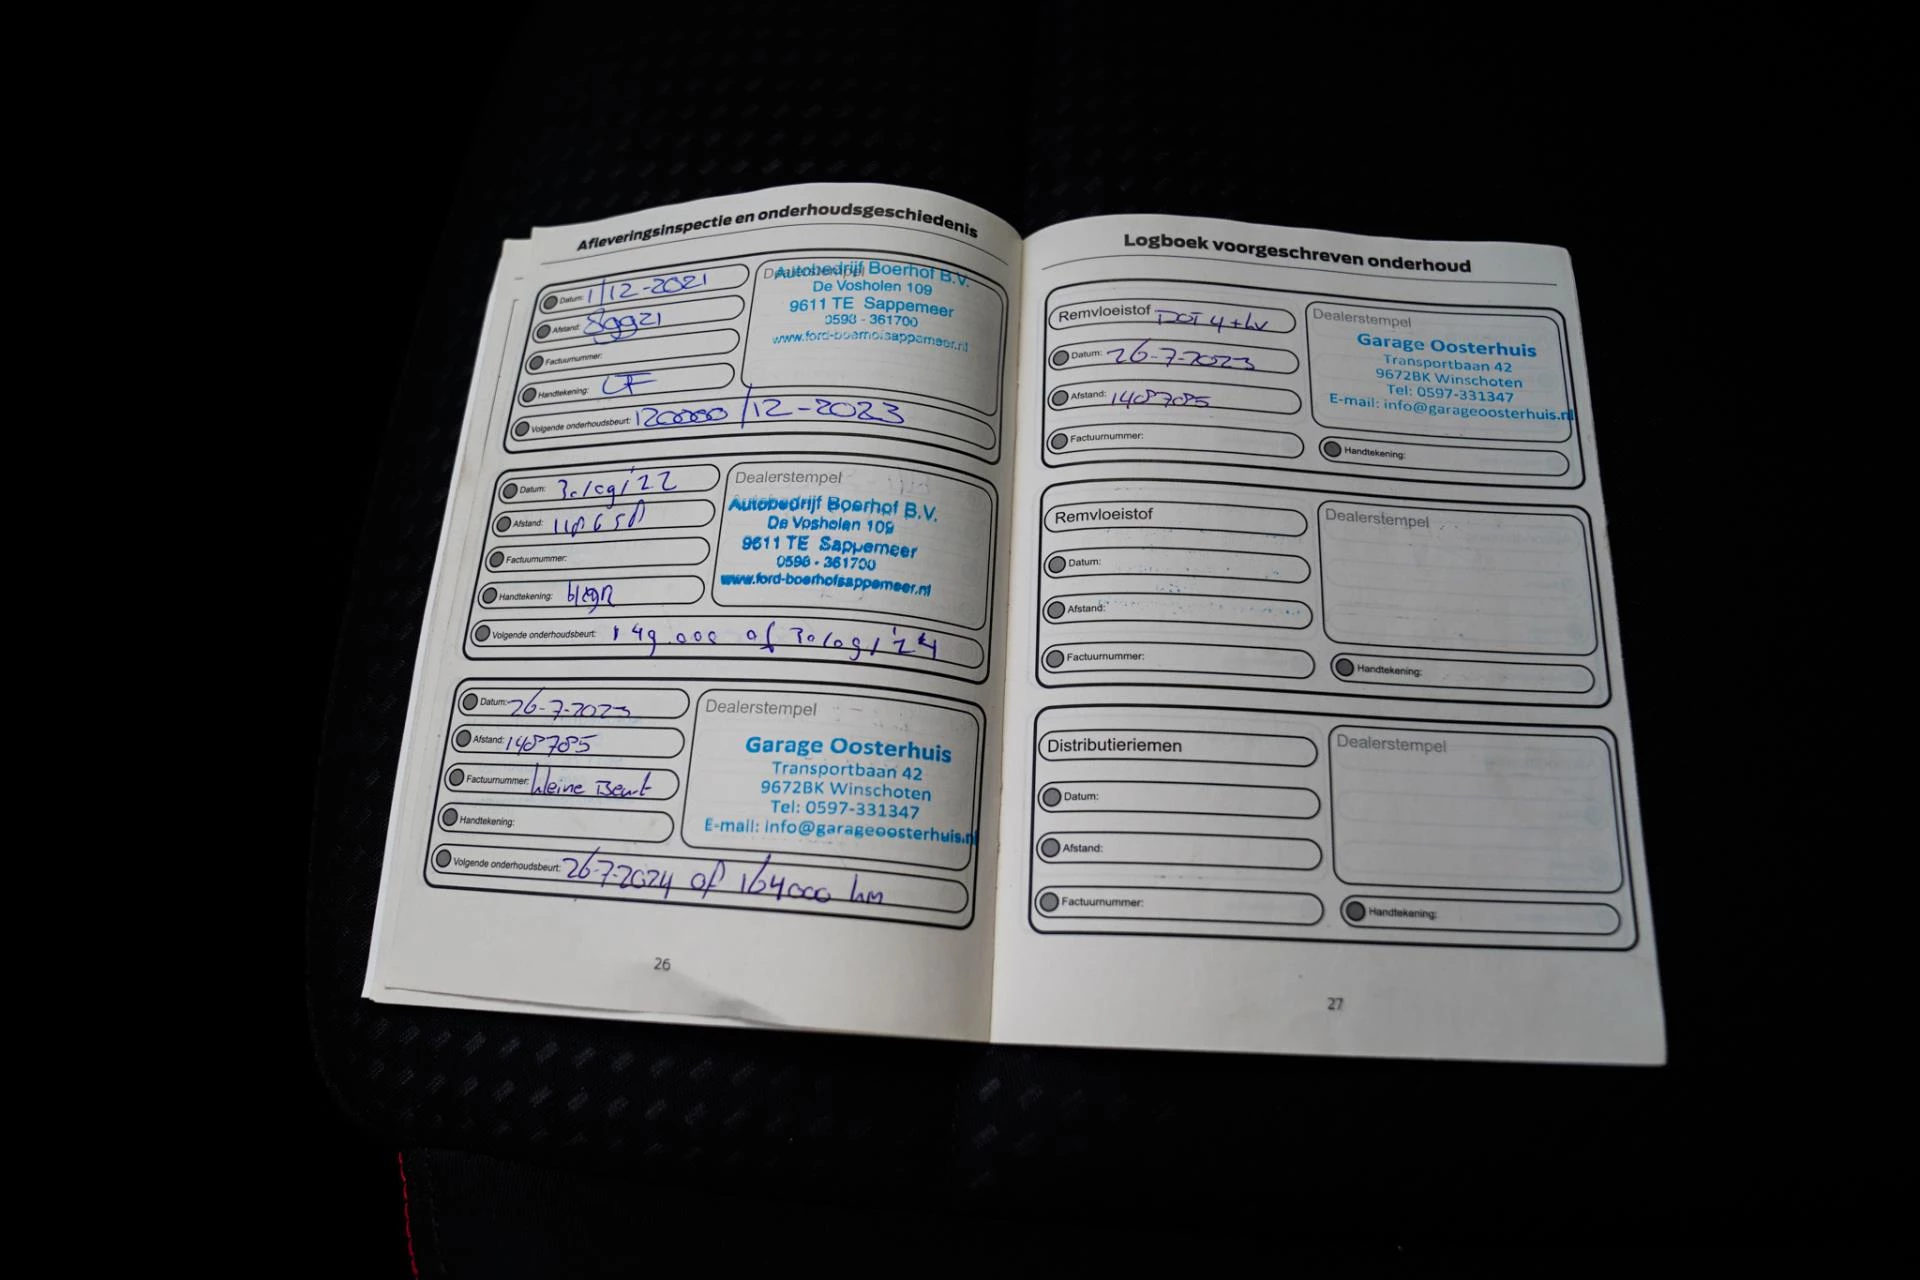 Afleveringsinspectie en onderhoudsgeschiedenis
Datum: 1/12-2021
Afstand: 89921
Factuurnummer:
Handtekening:
Volgende onderhoudsbeurt: 120000 / 12-2023
Dealerstempel
Autobedrijf Boerhof B.V.
De Vosholen 109
9611 TE Sappemeer
0598 - 361700
www.ford-boerhofsappemeer.nl
Datum: 30/09/'22
Afstand: 118658
Factuurnummer:
Handtekening:
Volgende onderhoudsbeurt: 149.000 of 30/09/'24
Dealerstempel
Autobedrijf Boerhof B.V.
De Vosholen 109
9611 TE Sappemeer
0598 - 361700
www.ford-boerhofsappemeer.nl
Datum: 26-7-2023
Afstand: 148785
Factuurnummer: kleine Beurt
Handtekening:
Volgende onderhoudsbeurt: 26-7-2024 of 164000 km
Dealerstempel
Garage Oosterhuis
Transportbaan 42
9672BK Winschoten
Tel: 0597-331347
E-mail: info@garageoosterhuis.nl
26
Logboek voorgeschreven onderhoud
Remvloeistof DOT 4 + LV
Datum: 26-7-2023
Afstand: 148785
Factuurnummer:
Dealerstempel
Garage Oosterhuis
Transportbaan 42
9672BK Winschoten
Tel: 0597-331347
E-mail: info@garageoosterhuis.nl
Handtekening:
Remvloeistof
Datum:
Afstand:
Factuurnummer:
Dealerstempel
Handtekening:
Distributieriemen
Datum:
Afstand:
Factuurnummer:
Dealerstempel
Handtekening:
27